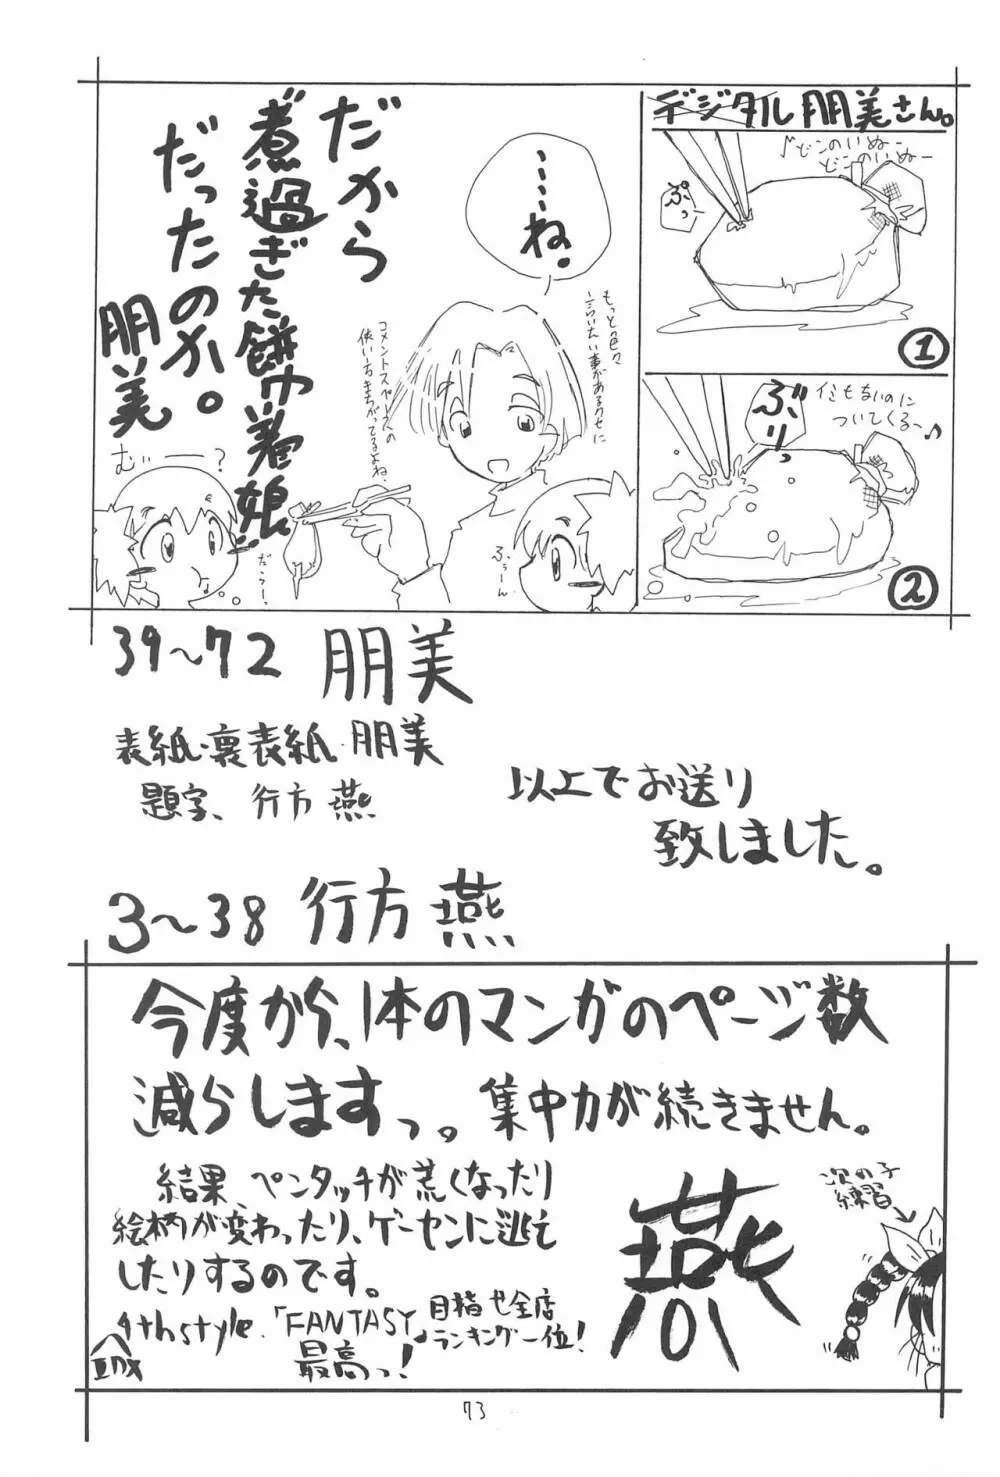 デジタル朋美さん。
♪ビンのいぬー
ビンのいぬー
ぷっ
1
ぶりっ
イミもないのに
ついてくるー♪
2
……ね。
もっとの色々
言いたい事があるクセに
コメントスペースの
使い方まちがってるよね。
だから
煮過ぎた餅巾着娘
だったのか。
朋美
むぃー?
ぶぅーん
39〜72 朋美
表紙・裏表紙 朋美
題字、行方 燕
以上でお送り
致しました。
3〜38 行方 燕
今度から、1本のマンガのページ数
減らしますっ。集中力が続きません。
結果、ペンタッチが荒くなったり
絵柄が変わったり、ゲーセンに逃亡
したりするのです。
4thstyle.「FANTASY」
IIDX
最高っ!
目指せ全店
ランキング一位!
燕
次の子
練習
73